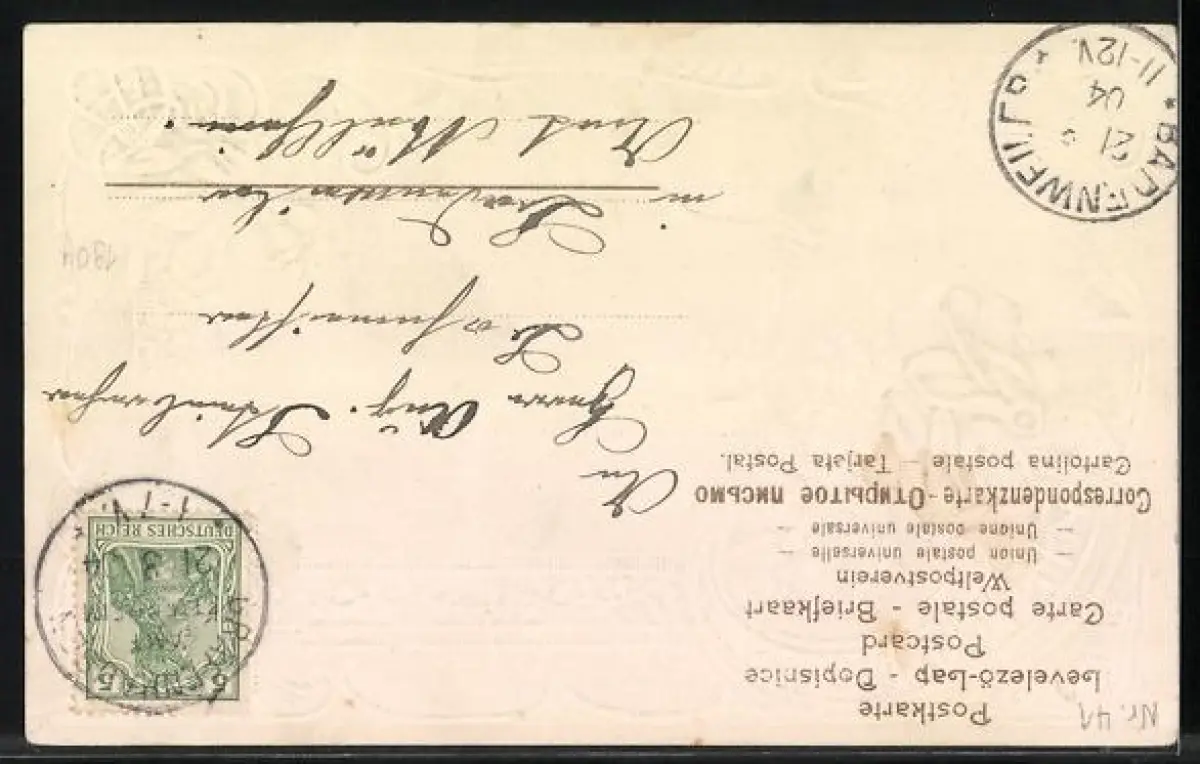 Nr. 41
Postkarte
Levelező-Lap - Dopisnice
Postcard
Carte postale - Briefkaart
Weltpostverein
— Union postale universelle —
— Unione postale universale —
Correspondenzkarte - Открытое письмо
Cartolina postale — Tarjeta Postal.
5 5
DEUTSCHES REICH
21 3 04
An
Herrn Aug.
in Badenweiler
Amt Müllheim.
1904
* BADENWEILER *
21 04
11-12V.